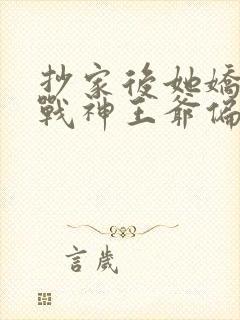 抄家後她嬌
戰神王爺偏
言歲